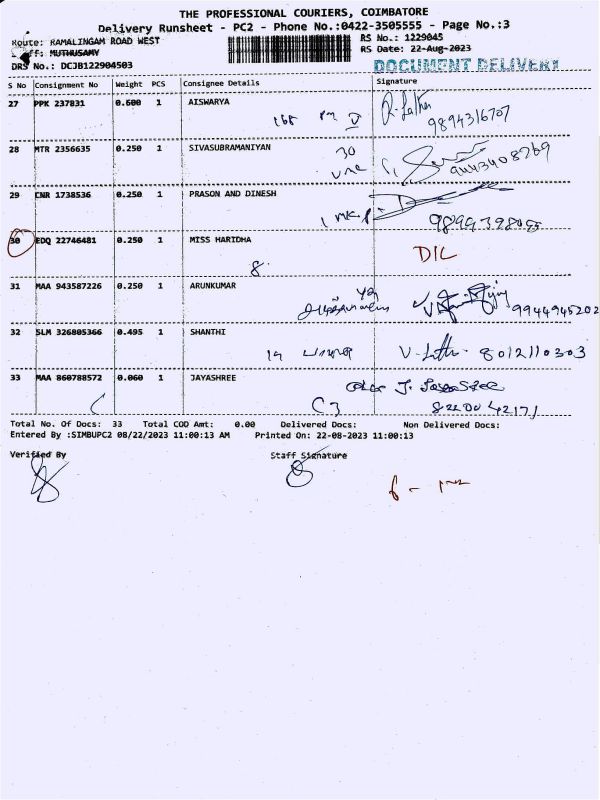 THE PROFESSIONAL COURIERS, COIMBATORE
Delivery Runsheet - PC2 - Phone No.:0422-3505555 - Page No.:3
Route: RAMALINGAM ROAD WEST
RS No.: 1229045
MUTHUSAMY
RS Date: 22-Aug-2023
DRS No.: DCJB122904503
DOCUMENT DELIVERY
S No Consignment No Weight PCS Consignee Details Signature
27 PPK 237831 0.600 1 AISWARYA
9894316707
28 MTR 2356635 0.250 1 SIVASUBRAMANIYAN
30
9443408769
29 CNR 1738536 0.250 1 PRASON AND DINESH
30 EDQ 22746481 0.250 1 MISS HARIDHA
8
DIL
31 MAA 943587226 0.250 1 ARUNKUMAR
9944945202
32 SLM 326805366 0.495 1 SHANTHI
8012110303
33 MAA 860788572 0.060 1 JAYASHREE
C3
Total No. Of Docs: 33 Total COD Amt: 0.00 Delivered Docs: Non Delivered Docs:
Entered By :SIMBUPC2 08/22/2023 11:00:13 AM Printed On: 22-08-2023 11:00:13
Verified By Staff Signature